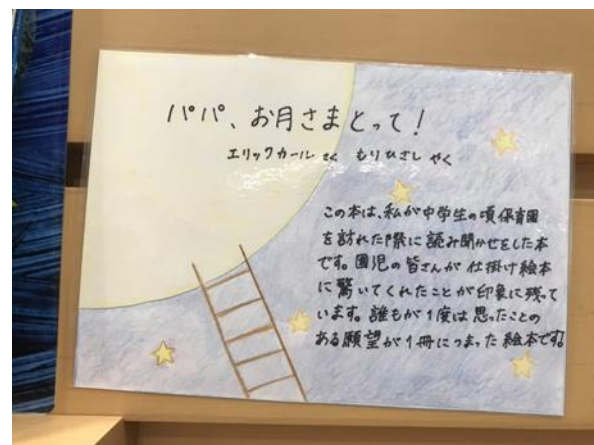 パパ、お月さまとって！
エリックカール さく もりひさし やく
この本は、私が中学生の頃保育園
を訪れた際に読み聞かせをした本
です。園児の皆さんが仕掛け絵本
に驚いてくれたことが印象に残って
います。誰もが1度は思ったことの
ある願望が1冊につまった絵本です。